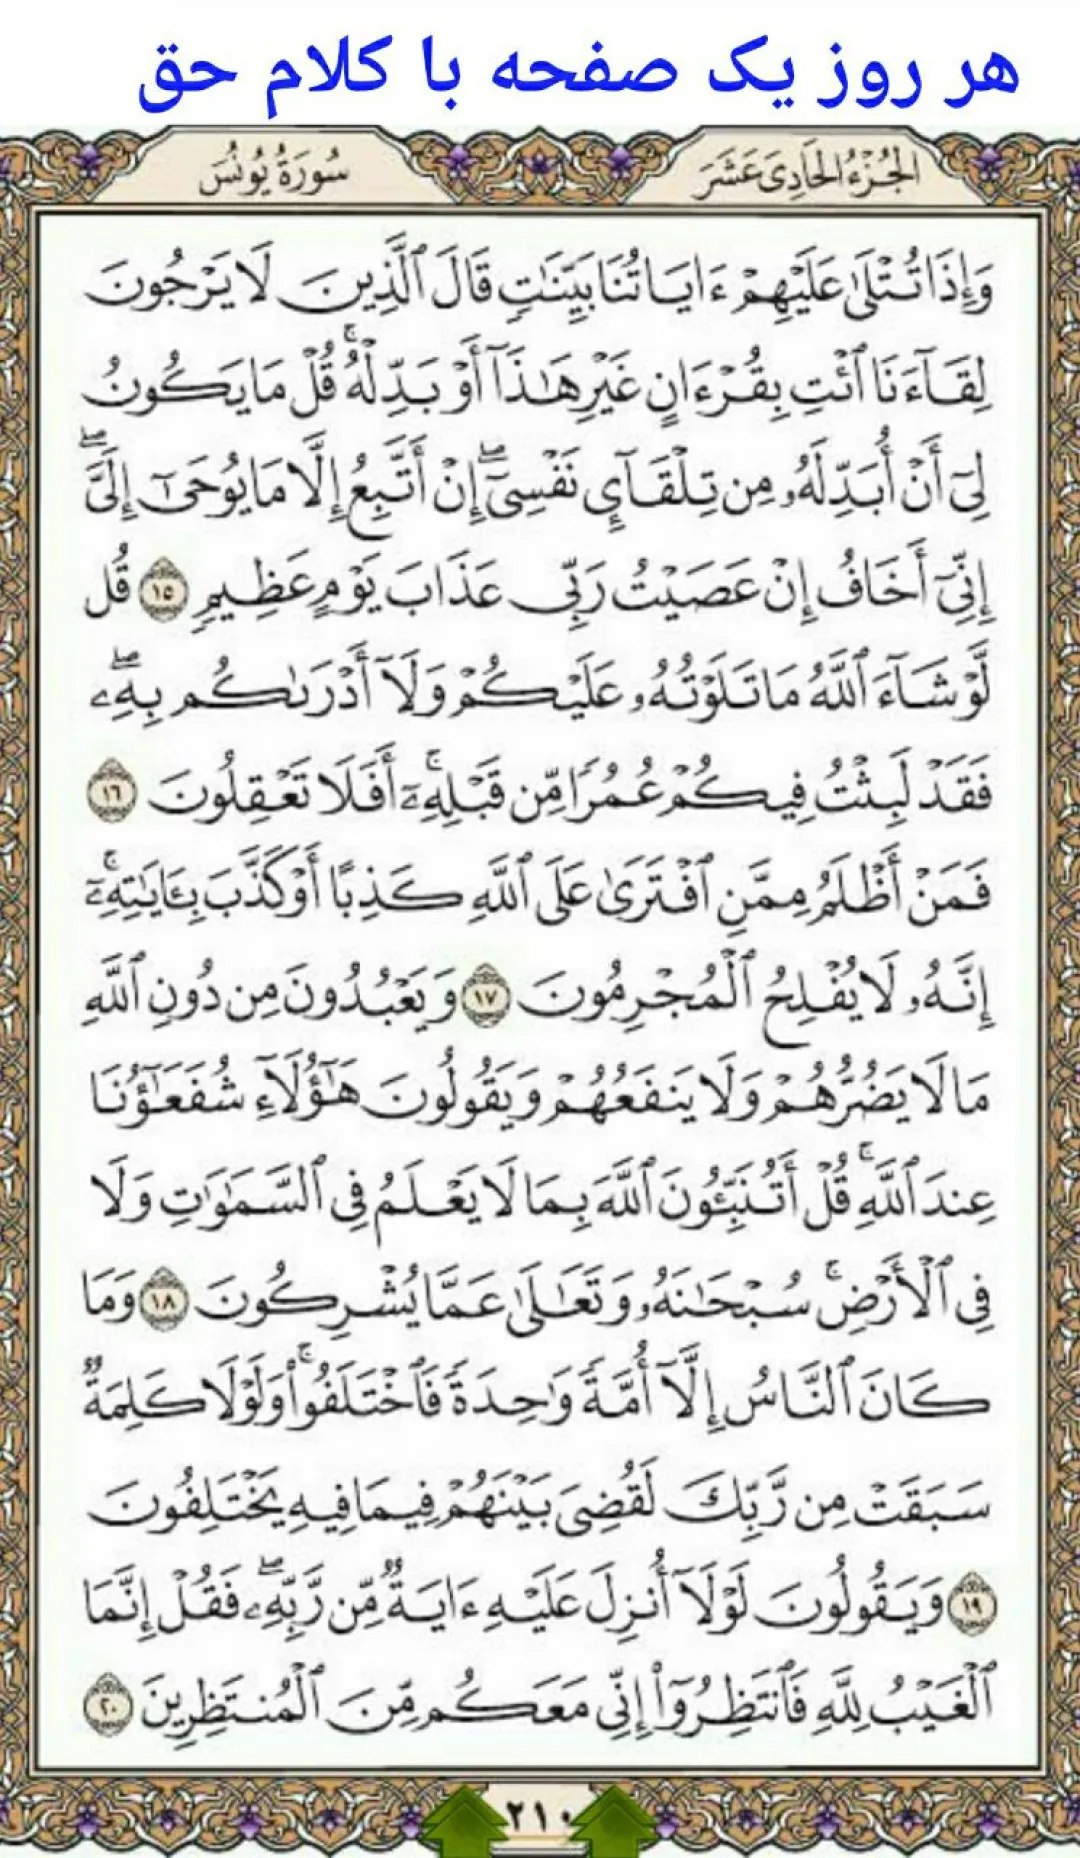 هر روز یک صفحه با کلام حق
الجُزْءُ الحَادِىَ عَشَرَ
سُورَةُ يُونُسَ
وَإِذَا تُتْلَىٰ عَلَيْهِمْ ءَايَاتُنَا بَيِّنَٰتٍ قَالَ ٱلَّذِينَ لَا يَرْجُونَ
لِقَآءَنَا ٱئْتِ بِقُرْءَانٍ غَيْرِ هَٰذَآ أَوْ بَدِّلْهُ ۚ قُلْ مَا يَكُونُ
لِىٓ أَنْ أُبَدِّلَهُۥ مِن تِلْقَآئِ نَفْسِىٓ ۖ إِنْ أَتَّبِعُ إِلَّا مَا يُوحَىٰٓ إِلَىَّ ۖ
إِنِّىٓ أَخَافُ إِنْ عَصَيْتُ رَبِّى عَذَابَ يَوْمٍ عَظِيمٍ ١٥ قُل
لَّوْ شَآءَ ٱللَّهُ مَا تَلَوْتُهُۥ عَلَيْكُمْ وَلَآ أَدْرَىٰكُم بِهِۦ ۖ
فَقَدْ لَبِثْتُ فِيكُمْ عُمُرًا مِّن قَبْلِهِۦٓ ۚ أَفَلَا تَعْقِلُونَ ١٦
فَمَنْ أَظْلَمُ مِمَّنِ ٱفْتَرَىٰ عَلَى ٱللَّهِ كَذِبًا أَوْ كَذَّبَ بِـَٔايَٰتِهِۦٓ ۚ
إِنَّهُۥ لَا يُفْلِحُ ٱلْمُجْرِمُونَ ١٧ وَيَعْبُدُونَ مِن دُونِ ٱللَّهِ
مَا لَا يَضُرُّهُمْ وَلَا يَنفَعُهُمْ وَيَقُولُونَ هَٰٓؤُلَآءِ شُفَعَٰٓؤُنَا
عِندَ ٱللَّهِ ۚ قُلْ أَتُنَبِّـُٔونَ ٱللَّهَ بِمَا لَا يَعْلَمُ فِى ٱلسَّمَٰوَٰتِ وَلَا
فِى ٱلْأَرْضِ ۚ سُبْحَٰنَهُۥ وَتَعَٰلَىٰ عَمَّا يُشْرِكُونَ ١٨ وَمَا
كَانَ ٱلنَّاسُ إِلَّآ أُمَّةً وَٰحِدَةً فَٱخْتَلَفُوا۟ ۚ وَلَوْلَا كَلِمَةٌ
سَبَقَتْ مِن رَّبِّكَ لَقُضِىَ بَيْنَهُمْ فِيمَا فِيهِ يَخْتَلِفُونَ
١٩ وَيَقُولُونَ لَوْلَآ أُنزِلَ عَلَيْهِ ءَايَةٌ مِّن رَّبِّهِۦ ۖ فَقُلْ إِنَّمَا
ٱلْغَيْبُ لِلَّهِ فَٱنتَظِرُوٓا۟ إِنِّى مَعَكُم مِّنَ ٱلْمُنتَظِرِينَ ٢٠
٢١٠